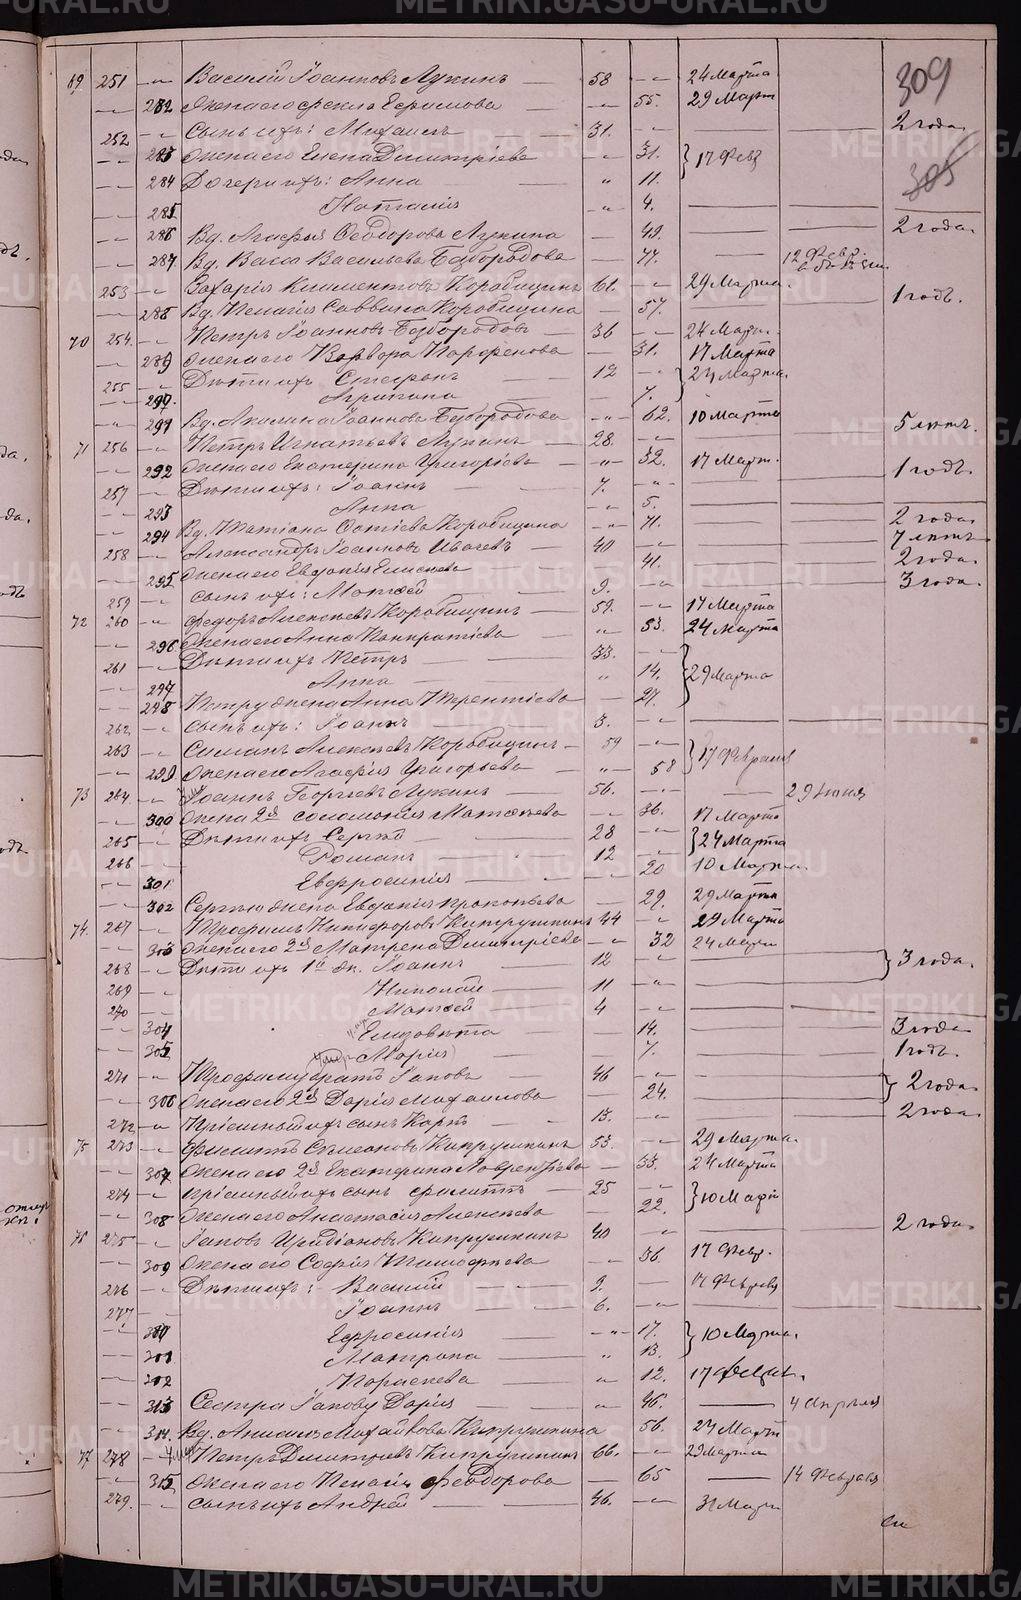 309
305
69 251 -"- Василій Іоанновъ Лукинъ — 58 -"- 24 Марта
-"- 282 Жена его Ефимова -"- 55. 29 Март
252 -"- Сынъ ихъ: Михаилъ 31. -"- 2 года
-"- 283 Жена его Елена Димитріева -"- 31. } 17 Фев
-"- 284 Дочери ихъ: Анна " 11.
-"- 285 Наталія " 4. 2 года.
-"- 286 Вд. Агафья Ѳеодорова Лукина — 49.
-"- 287 Вд. Васса Васильева Безбородова — 47. 12 Февр.
253 -"- Захарія Климентовъ Коровицинъ 61. -"- 29 Марта. 1 годъ.
-"- 288 Вд. Пелагія Саввина Коровицина — 57.
70 254. -"- Петръ Іоанновъ Безбородовъ — 36 -"- 24 Мар.
-"- 289 Жена его Варвора Парфенова — 31. 17 Марта
255 -"- Дѣти ихъ Стефанъ 12 -"- } 24 Марта
-"- 290 Агрипина — 7.
-"- 291 Вд. Акилина Іоаннова Безбородова -"- 62. 10 Марта 5 лѣтъ.
71 256 -"- Петръ Игнатьевъ Лукинъ — 28. -"-
-"- 292 Жена его Екатерина Григоріева -"- 32. 17 Март. 1 годъ.
257 -"- Дѣти ихъ: Іоаннъ 7. -"-
-"- 293 Анна -"- 5. 2 года
-"- 294 Вд. Татіана Коровицина -"- 71. 7 лѣтъ
258 -"- Александръ Іоанновъ Ивачевъ — 40 -"- 2 года.
-"- 295 Жена его Евдокія Елисеева 41. 3 года.
259 -"- Сынъ ихъ: Матѳей 9. -"-
72 260 -"- Ѳедоръ Алексѣевъ Коровицинъ — 59. -"- 17 Марта
-"- 296 Жена его Анна Панкратіева " 53. 24 Марта
261 -"- Дѣти ихъ Петръ 33. -"- } 29 Марта
-"- 297 Анна " 14.
-"- 298 Петру жена Анна Терентіева — 27.
262 -"- Сынъ ихъ: Іоаннъ 3. -"-
263 -"- Симіанъ Алексѣевъ Коровицинъ — 59 -"- } 17 Февраля
-"- 299 Жена его Агафія Григорьева -"- 58
73 264 -"- Іоаннъ Георгіевъ Лукинъ — 56. -"- 29 Іюня
-"- 300 Жена 2я Соломонія Матѳеева — 36. 17 Марта
265 -"- Дѣти ихъ Сергѣй 28 -"- } 24 Марта
266 -"- Романъ 12 -"-
-"- 301 Евфросинія — 20 10 Марта.
-"- 302 Сергѣю жена Евдокія Прокопьева — 29. 29 Марта
74. 267 -"- Трофимъ Никифоровъ Кипрушкинъ 44 -"- 29 Марта
-"- 303 Жена его 2я Матрена Димитріева -"- 32 24 Март
268 -"- Дѣти ихъ 1й ж. Іоаннъ 12 -"- } 3 года.
269 -"- Николай — 11 -"-
270 -"- Матѳей 4 -"-
-"- 304 Елизовѣта 14. 3 года
-"- 305 (умер. Марія) 7. 1 годъ.
271 -"- Трофиму братъ Іаковъ 46 -"- } 2 года
-"- 306 Жена его 2я Дарія Михайлова — 24.
272 -"- Пріемный ихъ сынъ Карпъ — 13. -"- 2 года
75 273 -"- Филиппъ Симеоновъ Кипрушкинъ 53. -"- 29 Марта.
-"- 307 Жена его 2я Екатерина Лаврентьева — 33. 24 Марта
274 -"- Пріемный ихъ сынъ Филиппъ — 25 -"- } 10 Мар
-"- 308 Жена его Анастасія Алексѣева — 22. 2 года.
76 275 -"- Іаковъ Иридіоновъ Кипрушкинъ 40 -"-
-"- 309 Жена его Софія Тимофѣева — 36. 17 Февр.
276 -"- Дѣти ихъ: Василій 9. 17 Февраля
277 -"- Іоаннъ 6. -"-
-"- 310 Евфросинія -"- 17. } 10 Марта.
-"- 311 Матрона " 13.
-"- 312 Параскева " 12. 17 Феврал.
-"- 313 Сестра Іакову Дарія -"- 46. 4 Апрѣля
-"- 314. Вд. Анисія Матвѣева Кипрушкина 56. 24 Март
77 278 -"- Петръ Димитріевъ Кипрушкинъ 66. -"- 29 Марта
-"- 315. Жена его Пелагія Ѳеодорова — 65 14 Февраля
279. -"- Сынъ ихъ Андрей 46. -"- 31 Март